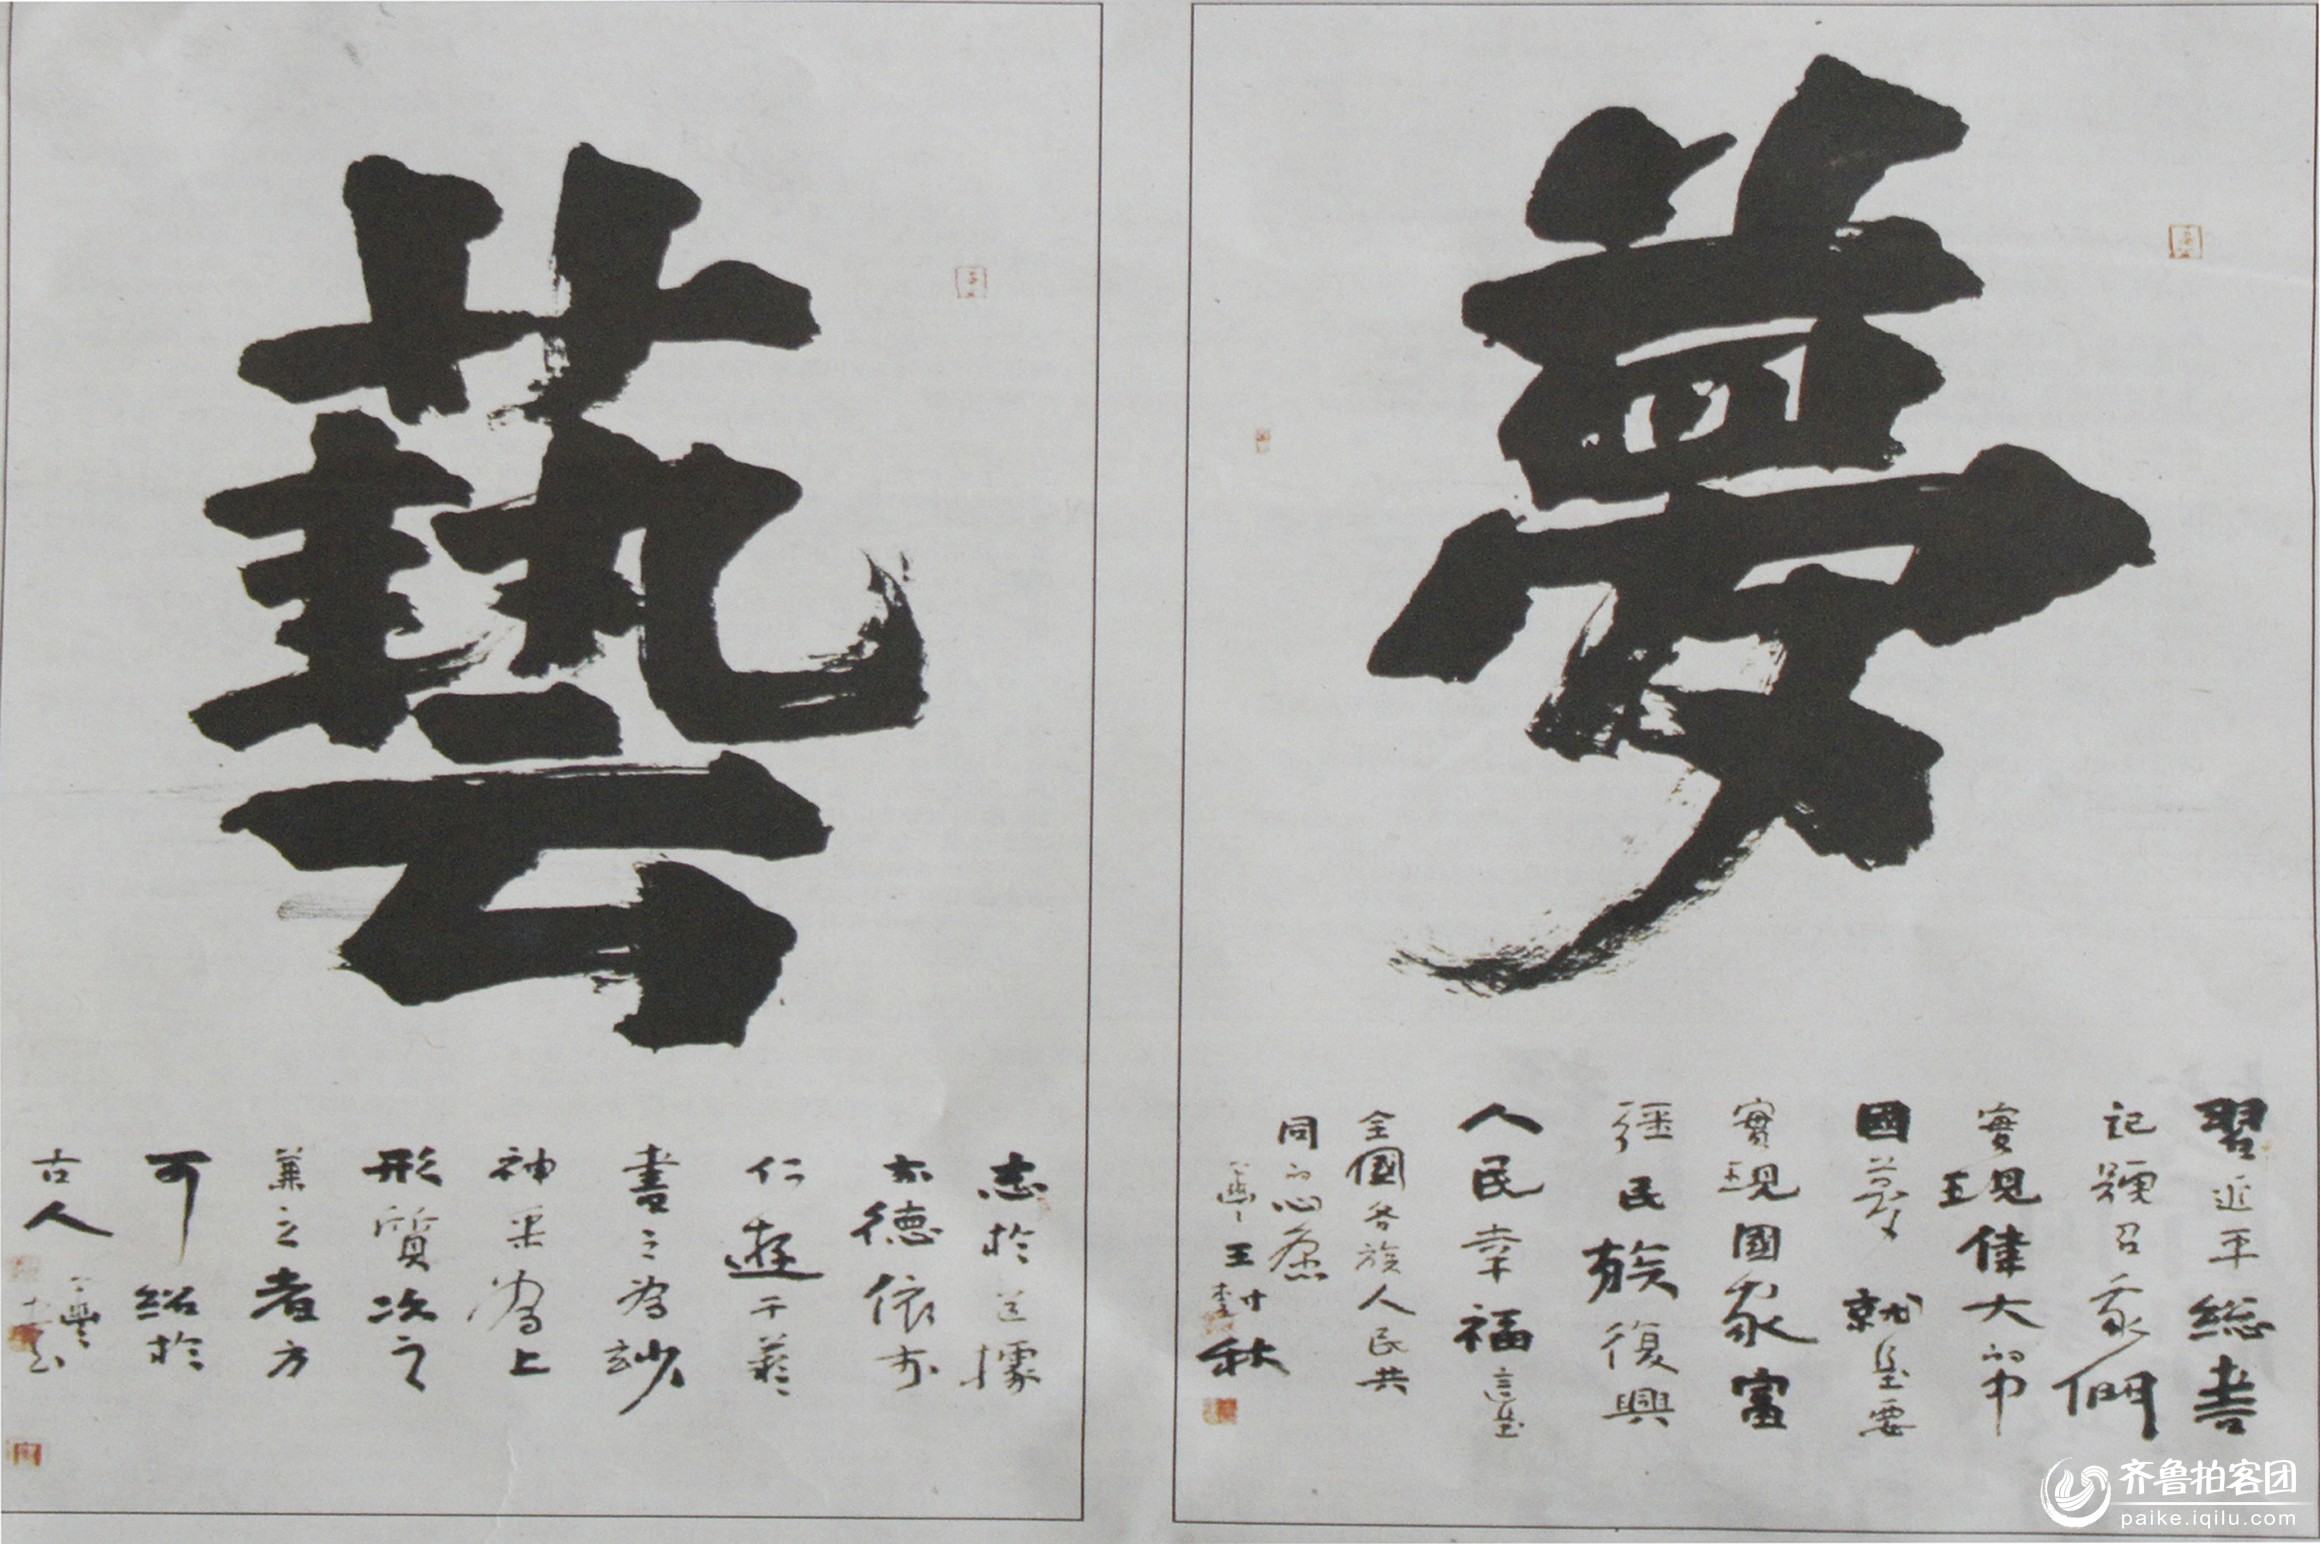 夢
習近平総書
記號召我們
實現偉大的中
國夢就是要
實現國家富
强民族復興
人民幸福這是
全國各族人民共
同的心愿
王
秋
藝
志於道據
於德依於
仁遊于藝
書之之為妙
神采為上
形質次之
兼之者方
可紹於
古人
齐鲁拍客团
paike.iqilu.com